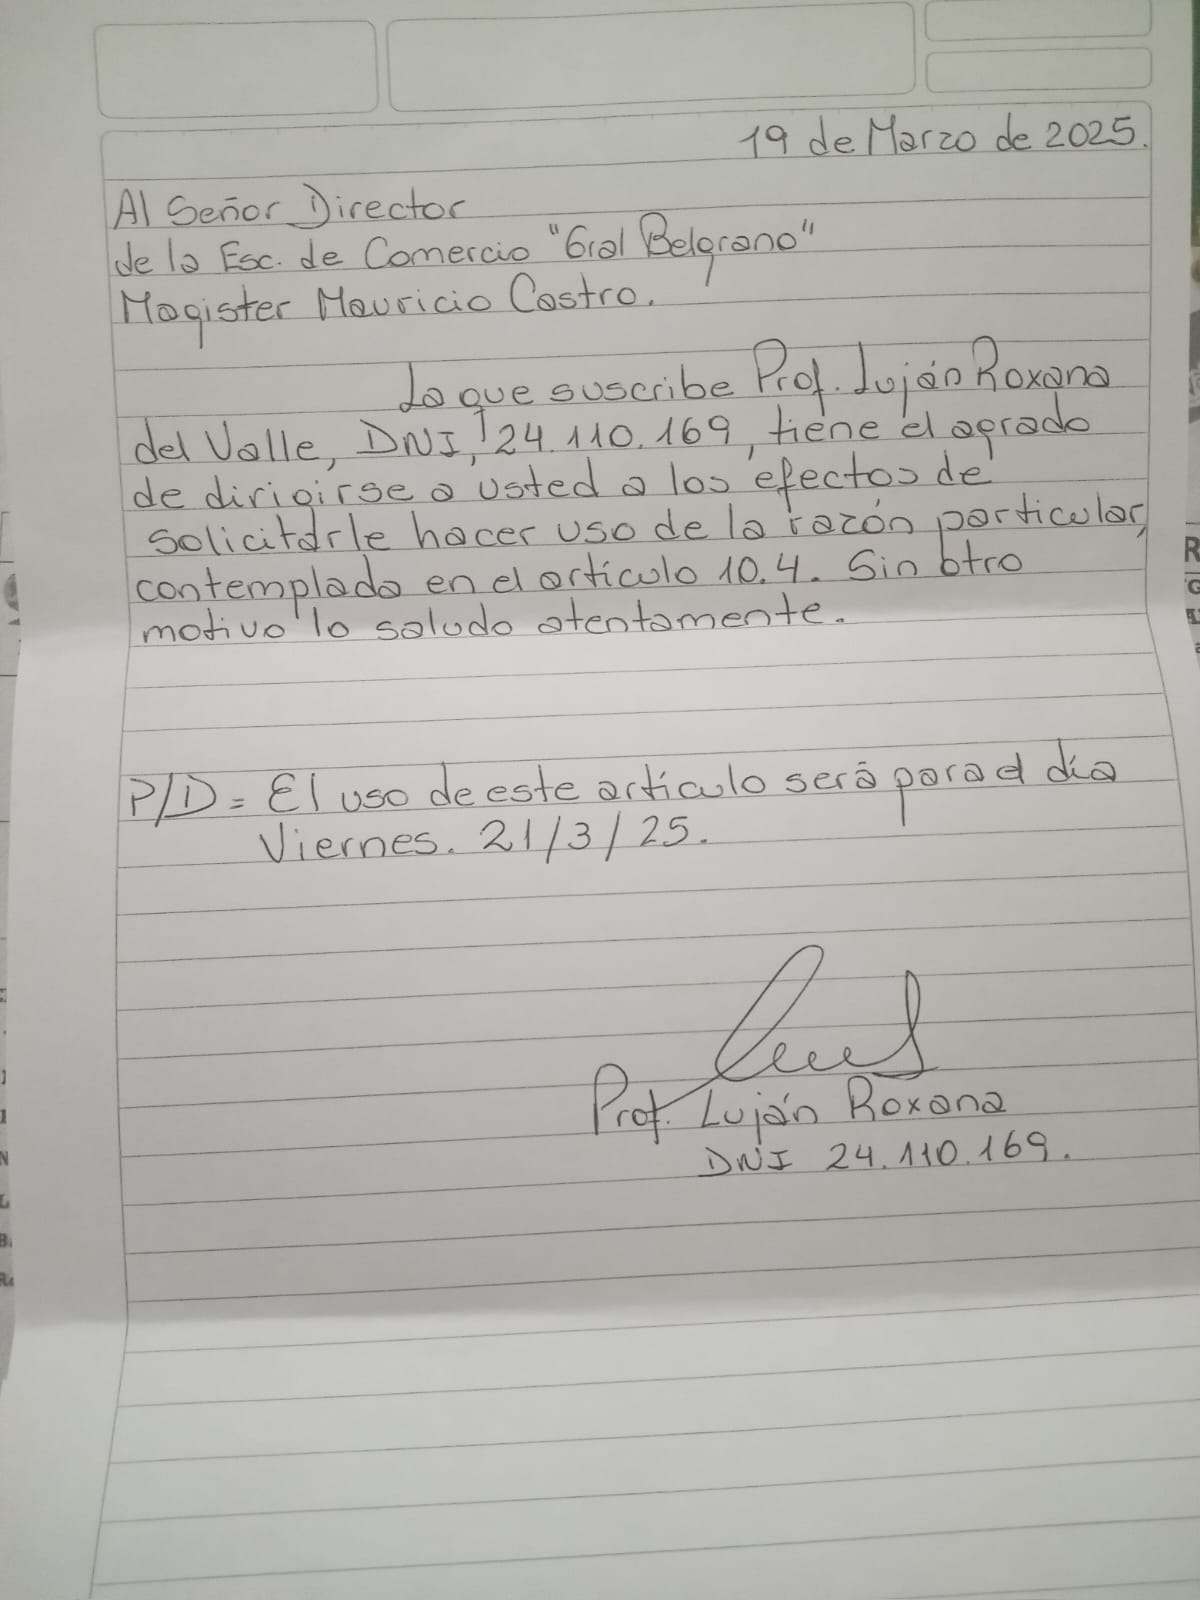 19 de Marzo de 2025.
Al Señor Director
de la Esc. de Comercio "Gral Belgrano"
Magister Mauricio Castro.
La que suscribe Prof. Luján Roxana
del Valle, DNI, 24.110.169, tiene el agrado
de dirigirse a usted a los efectos de
solicitarle hacer uso de la razón particular,
contemplada en el artículo 10.4. Sin otro
motivo lo saludo atentamente.
P/D = El uso de este artículo será para el día
Viernes. 21/3/25.
Prof. Luján Roxana
DNI 24.110.169.